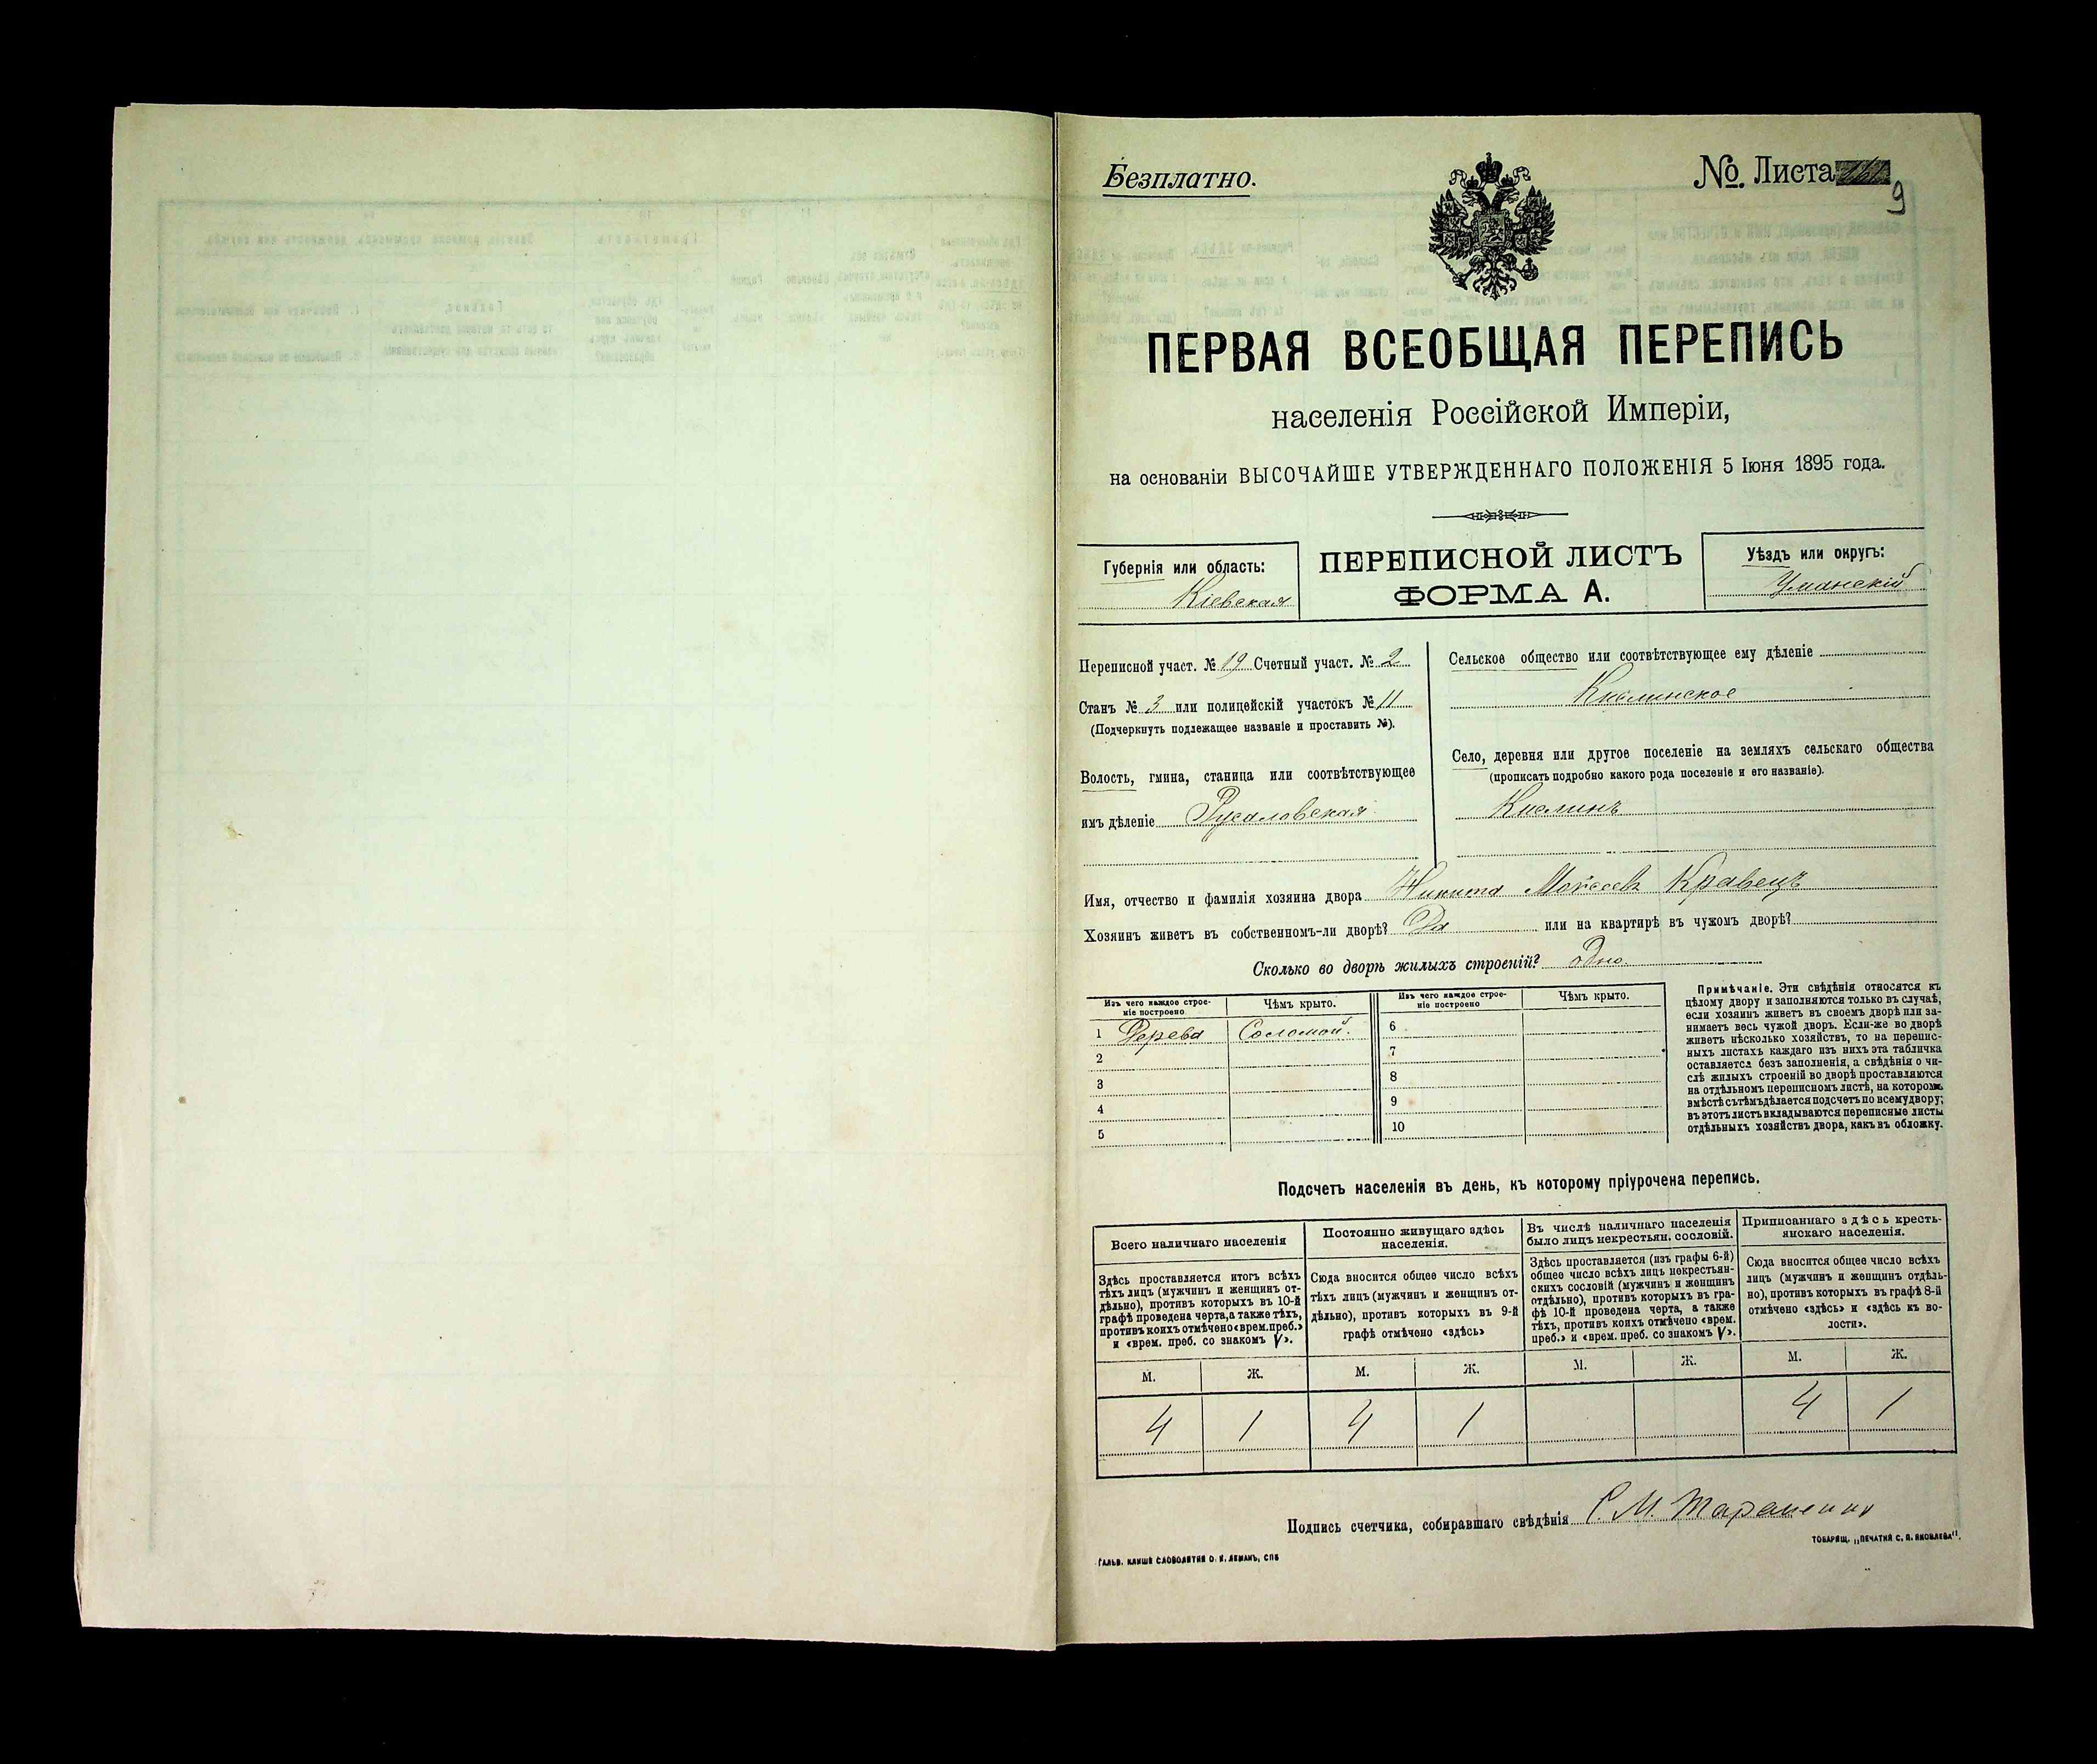 Безплатно.
№. Листа
9
ПЕРВАЯ ВСЕОБЩАЯ ПЕРЕПИСЬ
населенія Россійской Имперіи,
на основаніи ВЫСОЧАЙШЕ УТВЕРЖДЕННАГО ПОЛОЖЕНІЯ 5 Іюня 1895 года.
Губернія или область:
Кіевская
ПЕРЕПИСНОЙ ЛИСТЪ
ФОРМА А.
Уѣздъ или округъ:
Уманскій
Переписной участ. № 19 Счетный участ. № 2
Станъ № 3 или полицейскій участокъ № 11
(Подчеркнуть подлежащее названіе и проставить №).
Волость, гмина, станица или соотвѣтствующее
имъ дѣленіе Русаловская
Сельское общество или соотвѣтствующее ему дѣленіе
Кислинское
Село, деревня или другое поселеніе на земляхъ сельскаго общества
(прописать подробно какого рода поселеніе и его названіе).
Кислинъ
Имя, отчество и фамилія хозяина двора Никита Моисеевъ Кравецъ
Хозяинъ живетъ въ собственномъ-ли дворѣ? Да или на квартирѣ въ чужомъ дворѣ?
Сколько во дворѣ жилыхъ строеній? одно
Изъ чего каждое строе-
ніе построено
Чѣмъ крыто.
1 Дерева Соломой.
2
3
4
5
Изъ чего каждое строе-
ніе построено
Чѣмъ крыто.
6
7
8
9
10
Примѣчаніе. Эти свѣдѣнія относятся къ
цѣлому двору и заполняются только въ случаѣ,
если хозяинъ живетъ въ своемъ дворѣ или за-
нимаетъ весь чужой дворъ. Если-же во дворѣ
живетъ нѣсколько хозяйствъ, то на перепис-
ныхъ листахъ каждаго изъ нихъ эта табличка
оставляется безъ заполненія, а свѣдѣнія о чи-
слѣ жилыхъ строеній во дворѣ проставляются
на отдѣльномъ переписномъ листѣ, на которомъ
вмѣстѣ съ тѣмъ дѣлается подсчетъ по всему двору;
въ этотъ листъ вкладываются переписные листы
отдѣльныхъ хозяйствъ двора, какъ въ обложку.
Подсчетъ населенія въ день, къ которому пріурочена перепись.
Всего наличнаго населенія
Здѣсь проставляется итогъ всѣхъ
тѣхъ лицъ (мужчинъ и женщинъ от-
дѣльно), противъ которыхъ въ 10-й
графѣ проведена черта, а также тѣхъ,
противъ коихъ отмѣчено «врем. преб.»
и «врем. преб. со знакомъ V».
Постоянно живущаго здѣсь
населенія.
Сюда вносится общее число всѣхъ
тѣхъ лицъ (мужчинъ и женщинъ от-
дѣльно), противъ которыхъ въ 9-й
графѣ отмѣчено «здѣсь»
Въ числѣ наличнаго населенія
было лицъ некрестьян. сословій.
Здѣсь проставляется (изъ графы 6-й)
общее число всѣхъ лицъ некрестьян-
скихъ сословій (мужчинъ и женщинъ
отдѣльно), противъ которыхъ въ гра-
фѣ 10-й проведена черта, а также
тѣхъ, противъ коихъ отмѣчено «врем.
преб.» и «врем. преб. со знакомъ V».
Приписаннаго здѣсь кресть-
янскаго населенія.
Сюда вносится общее число всѣхъ
лицъ (мужчинъ и женщинъ отдѣль-
но), противъ которыхъ въ графѣ 8-й
отмѣчено «здѣсь» и «здѣсь къ во-
лости».
М. Ж. М. Ж. М. Ж. М. Ж.
4 1 4 1 4 1
Подпись счетчика, собиравшаго свѣдѣнія С. М. Тараненко
ГАЛЬВ. КЛИШЕ СЛОВОЛИТНИ О. И. ЛЕМАНЪ, СПБ
ТОВАРИЩ. „ПЕЧАТНЯ С. П. ЯКОВЛЕВА".